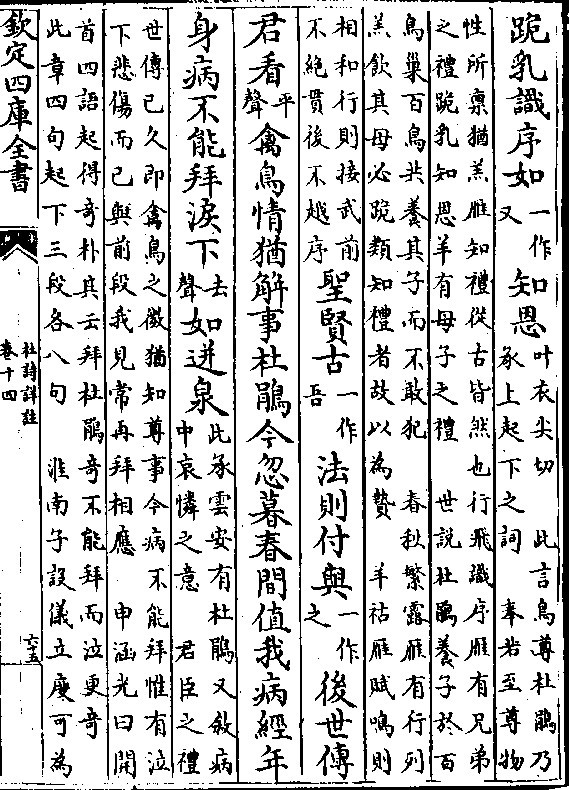 跪乳識序如一作又知恩叶衣尖切　此言鳥尊杜鵑乃承上起下之詞　奉若至尊物
性所禀猶羔雁知禮從古皆然也行飛識序雁有兄弟
之禮跪乳知恩羊有母子之禮　世說杜鵑養子於百
鳥巢百鳥共養其子而不敢犯　春秋繁露雁有行列
羔飲其母必跪類知禮者故以為贄　羊祜雁賦鳴則
相和行則接武前不絶貫後不越序聖賢古一作吾法則付與一作之後世傳
君看平聲禽鳥情猶解事杜鵑今忽暮春間值我病經年
身病不能拜淚下去聲如迸泉此承雲安有杜鵑又叙病中哀憐之意　君臣之禮
世傳已久即禽鳥之微猶知尊事今病不能拜惟有泣
下悲傷而已與前段我見常再拜相應　申涵光曰開
首四語起得奇朴其云拜杜鵑奇不能拜而泣更奇
此章四句起下三段各八句　淮南子設儀立度可為
欽定四庫全書
杜詩詳註
卷十四
六十五